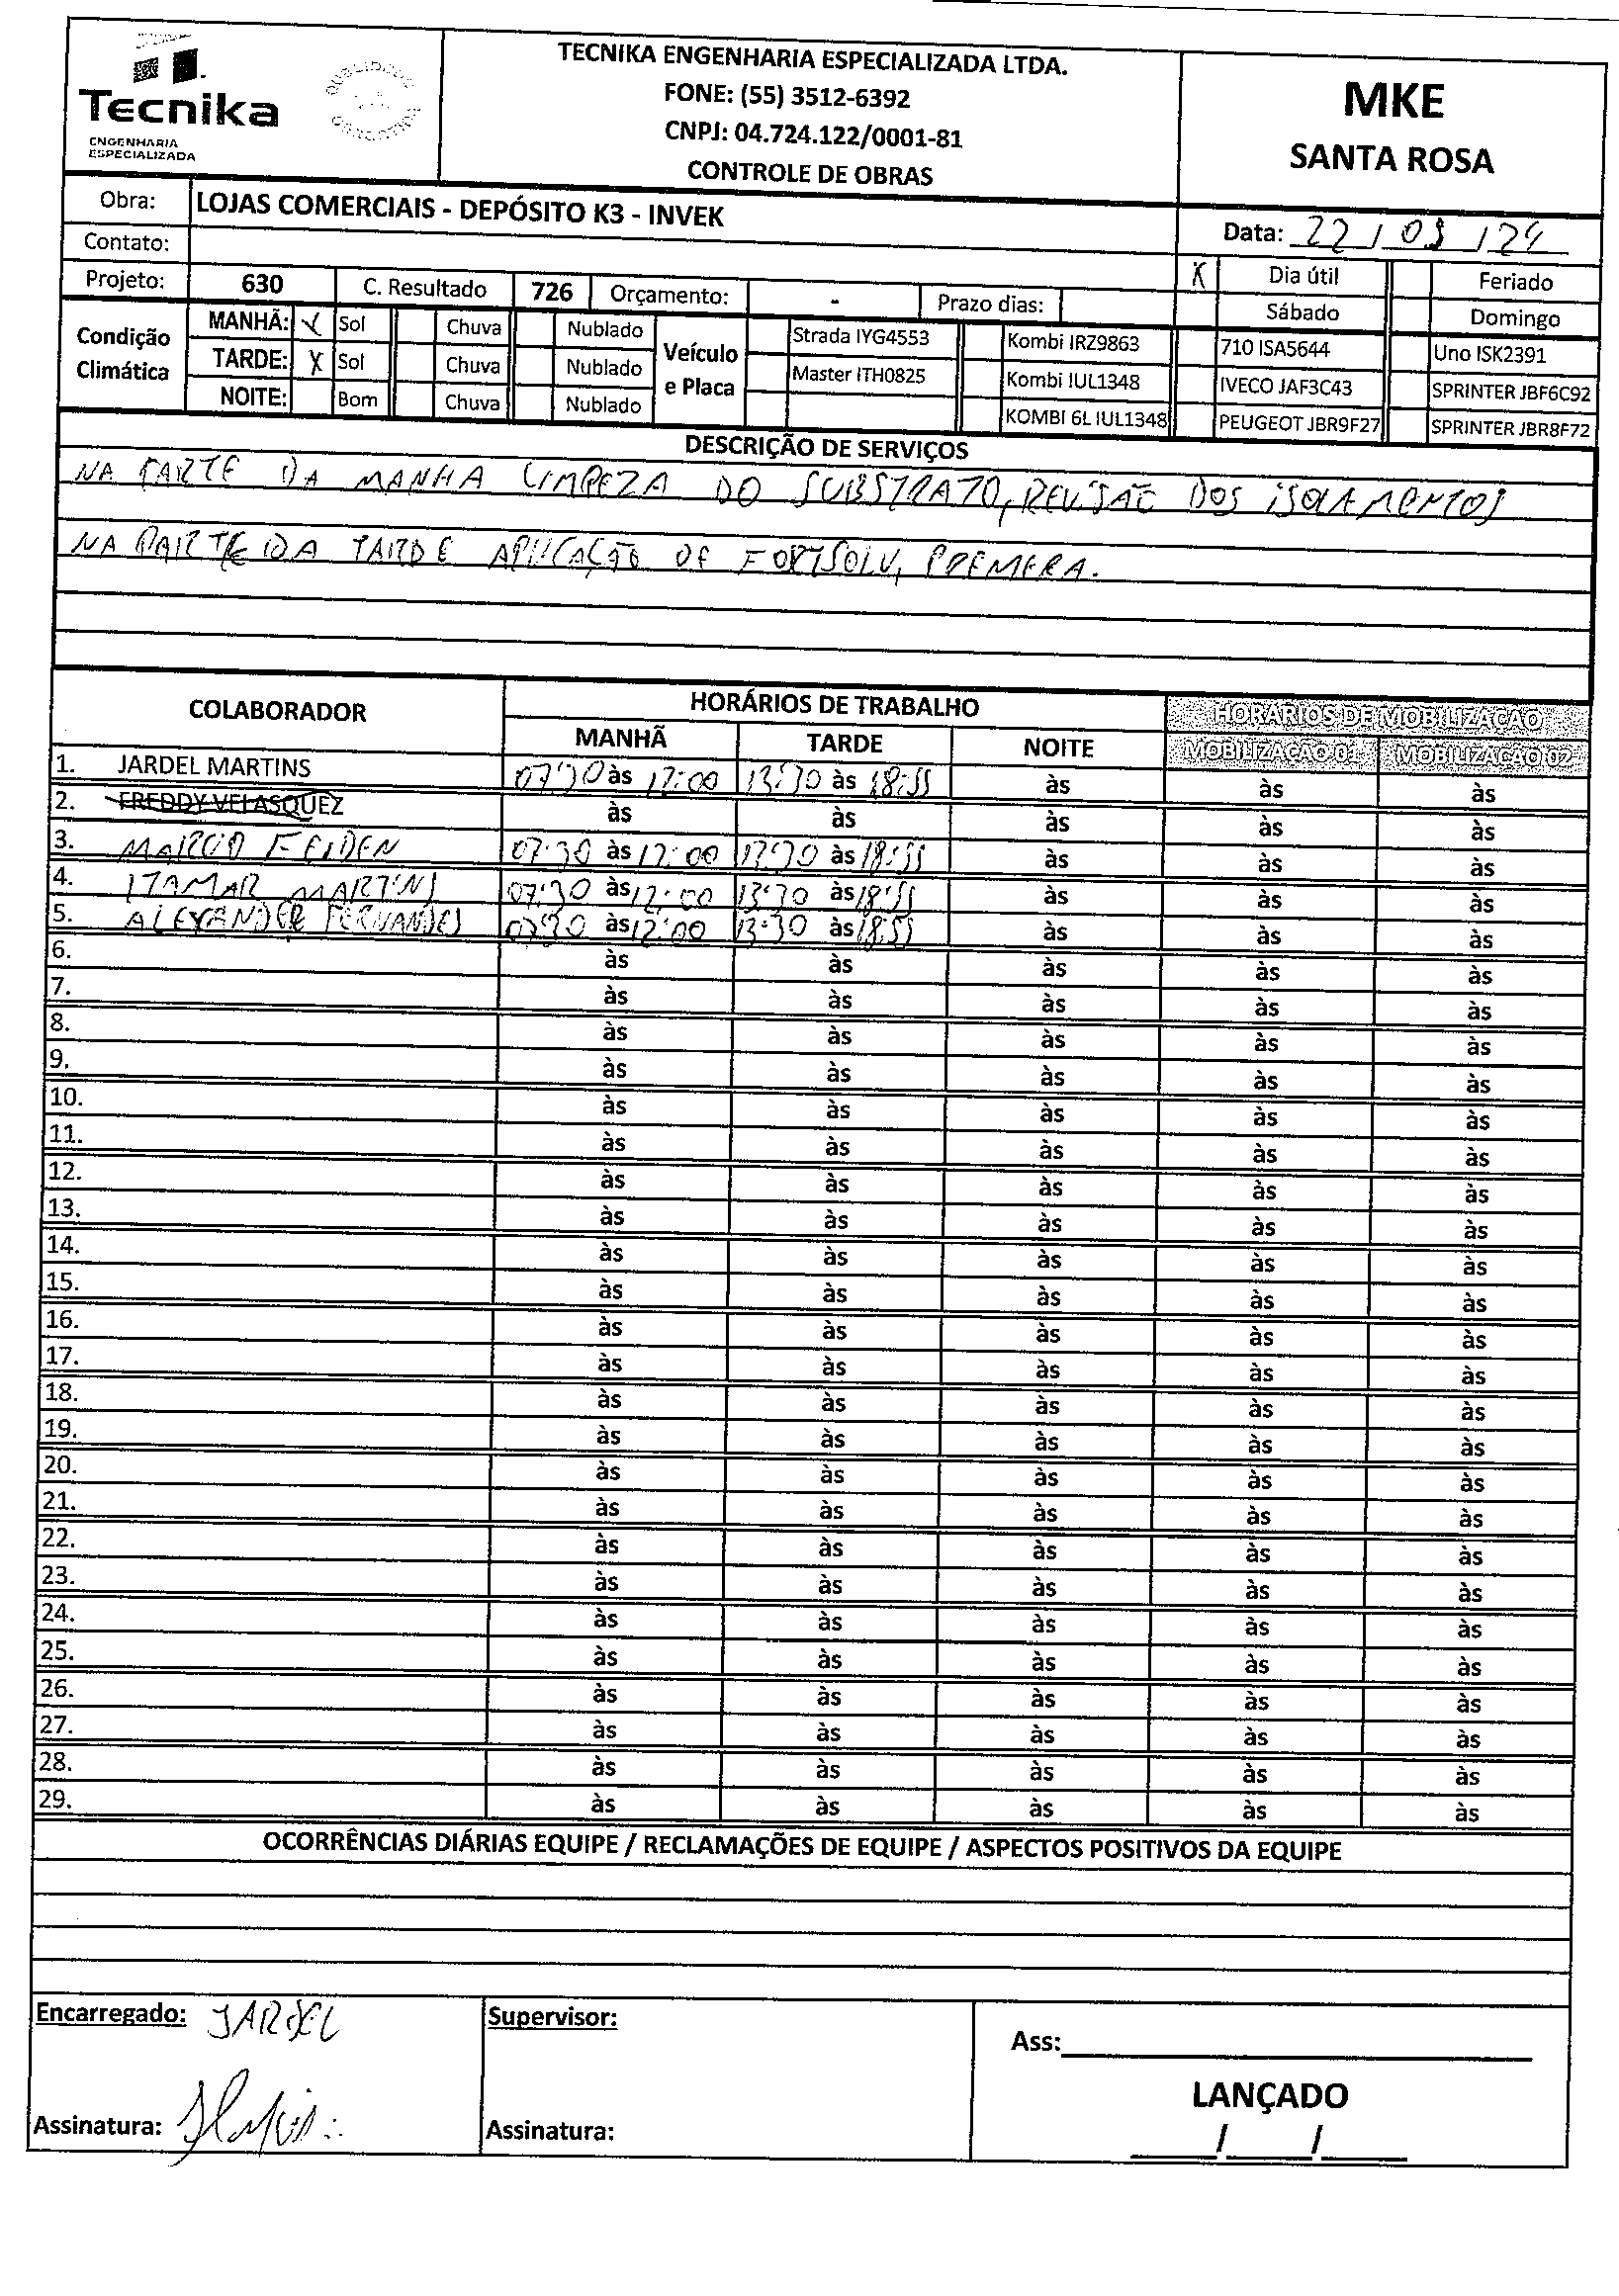 Tecnika
ENGENHARIA
ESPECIALIZADA
TECNIKA ENGENHARIA ESPECIALIZADA LTDA.
FONE: (55) 3512-6392
CNPJ: 04.724.122/0001-81
CONTROLE DE OBRAS
MKE
SANTA ROSA
Obra: LOJAS COMERCIAIS - DEPÓSITO K3 - INVEK
Data: 22 / 03 / 24
Contato:
X Dia útil Feriado
Projeto: 630 C. Resultado 726 Orçamento: - Prazo dias:
Sábado Domingo
Condição Climática
MANHÃ: X Sol Chuva Nublado
TARDE: X Sol Chuva Nublado
NOITE: Bom Chuva Nublado
Veículo e Placa
Strada IYG4553 Kombi IRZ9863 710 ISA5644 Uno ISK2391
Master ITH0825 Kombi IUL1348 IVECO JAF3C43 SPRINTER JBF6C92
KOMBI 6L IUL1348 PEUGEOT JBR9F27 SPRINTER JBR8F72
DESCRIÇÃO DE SERVIÇOS
NA PARTE DA MANHA LIMPEZA DO SUBSTRATO, REVISÃO DOS ISOLAMENTOS
NA PARTE DA TARDE APLICAÇÃO DE FORTSOLV, PREMERA.
COLABORADOR HORÁRIOS DE TRABALHO HORÁRIOS DE MOBILIZAÇÃO
MANHÃ TARDE NOITE MOBILIZAÇÃO 01 MOBILIZAÇÃO 02
1. JARDEL MARTINS 07:30 às 12:00 13:30 às 18:55 às às às
2. FREDDY VELASQUEZ às às às às às
3. MARCIO FEIDEN 07:30 às 12:00 13:30 às 18:55 às às às
4. ITAMAR MARTINS 07:30 às 12:00 13:30 às 18:55 às às às
5. ALEXANDER FERNANDES 07:30 às 12:00 13:30 às 18:55 às às às
6. às às às às às
7. às às às às às
8. às às às às às
9. às às às às às
10. às às às às às
11. às às às às às
12. às às às às às
13. às às às às às
14. às às às às às
15. às às às às às
16. às às às às às
17. às às às às às
18. às às às às às
19. às às às às às
20. às às às às às
21. às às às às às
22. às às às às às
23. às às às às às
24. às às às às às
25. às às às às às
26. às às às às às
27. às às às às às
28. às às às às às
29. às às às às às
OCORRÊNCIAS DIÁRIAS EQUIPE / RECLAMAÇÕES DE EQUIPE / ASPECTOS POSITIVOS DA EQUIPE
Encarregado: JARDEL
Supervisor:
Ass:
LANÇADO
Assinatura:
Assinatura:
/ /